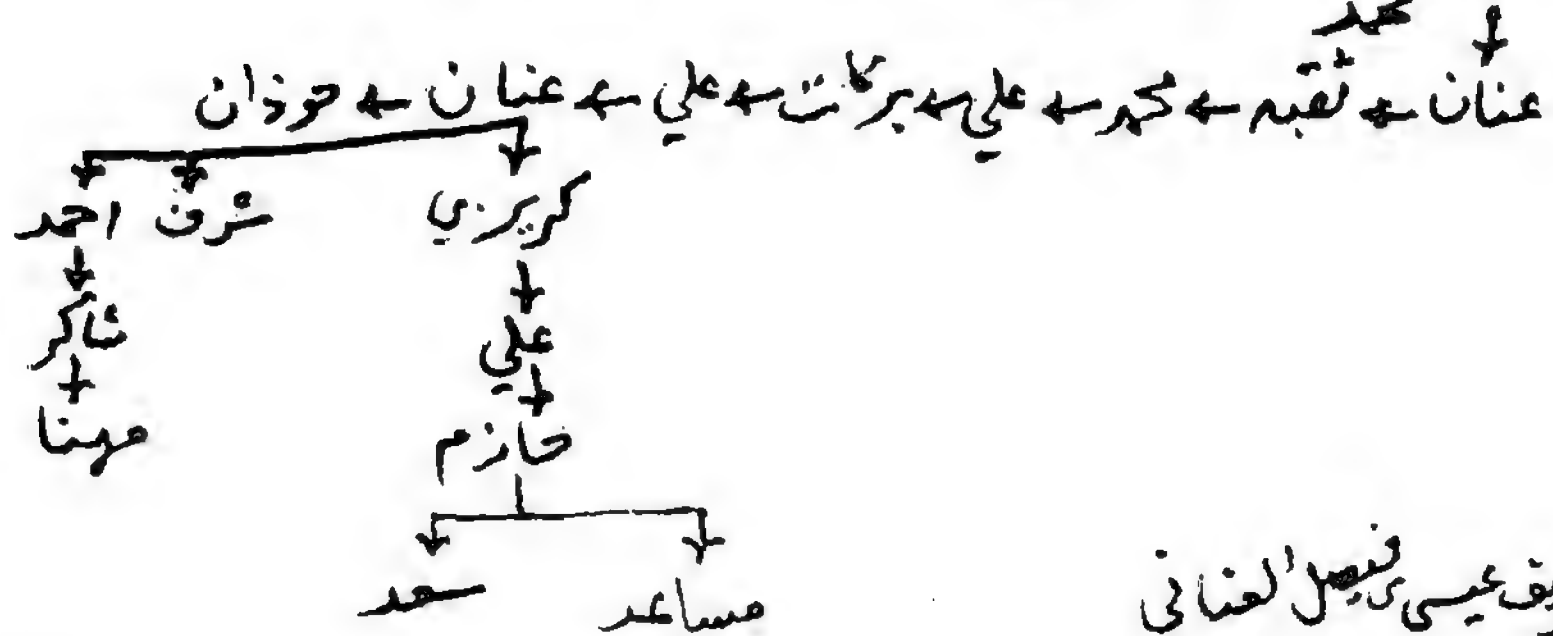 محمد
عنان ← ثقبه ← محمد ← علي ← بركات ← علي ← عنان ← حوذان
كريزي شرف احمد
علي شاكر
حازم مهنا
مساعد سعد
عيسى فيصل العناني